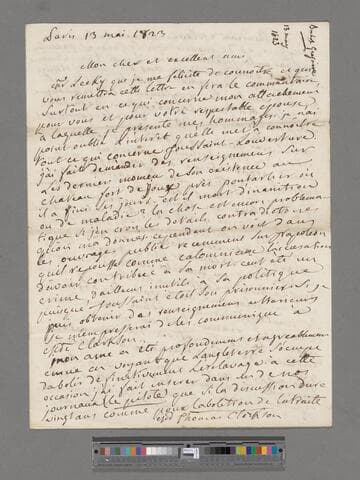 Paris 13 mai 1823
13 may
1823
Mon cher et excellent ami
Mr Lecky que je me félicite de connoitre et qui
vous remettra cette lettre en sera le commentaire
Surtout en ce qui concerne mon attachement
pour vous et pour votre respectable épouse
à laquelle je présente mes hommages. je n'ai
point oublié l'intérêt qu'elle met à connoitre
tout ce qui concerne Toussaint-Louverture
j'ai fait demander des renseignemens sur
les derniers momens de son existence au
chateau fort de Joux près pontarlier où
il a fini ses jours. est il mort d'inanition
ou de maladie? la chose est encor problema-
tique si j'en crois les details contradictoires
qu'on m'a donnés cependant on voit dans
les ouvrages publiés recemment sur Napoleon
qu'il repousse comme calomnieuse l'accusation
d'avoir contribué à sa mort c'eut été un
crime d'ailleurs inutile à sa politique
puisque Toussaint etoit son prisonnier. Si je
puis obtenir des renseignemens ulterieurs
je m'empresserai de les communiquer à
Mde Clarkson.
mon ame a été profondement et agreablement
emue en voyant que l'angleterre s'occupe
d'abolir definitivement l'esclavage à cette
occasion j'ai fait inserer dans un de nos
journaux (le pilote) que si la discussion dure
vingt ans comme pour l'abolition de la traite
Thomas Clarkson